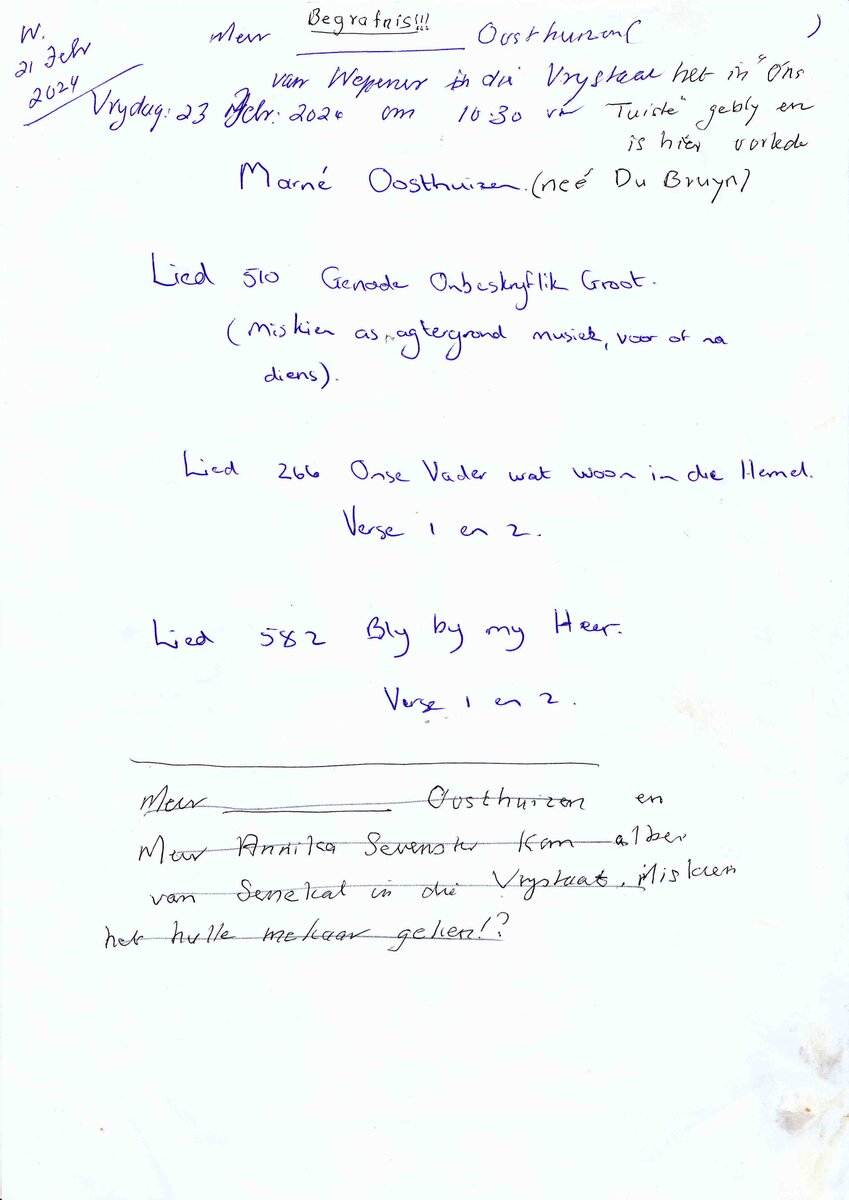 W.
21 Febr
2024
Begrafnis!!!
Mev ________ Oosthuizen( )
van Wepener in die Vrystaat het in "Ons
Vrydag: 23 Febr: 2024 om 10:30 vm Tuiste" gebly en
is hier oorlede
Marné Oosthuizen.(neé Du Bruyn)
Lied 510 Genade Onbeskryflik Groot.
(Miskien as agtergrond musiek, voor of na
diens).
Lied 266 Onse Vader wat woon in die Hemel.
Verse 1 en 2.
Lied 582 Bly by my Heer.
Verse 1 en 2.
Mev ________ Oosthuizen en
Mev Annika Sevenster kom albei
van Senekal in die Vrystaat. Miskien
het hulle mekaar geken!?